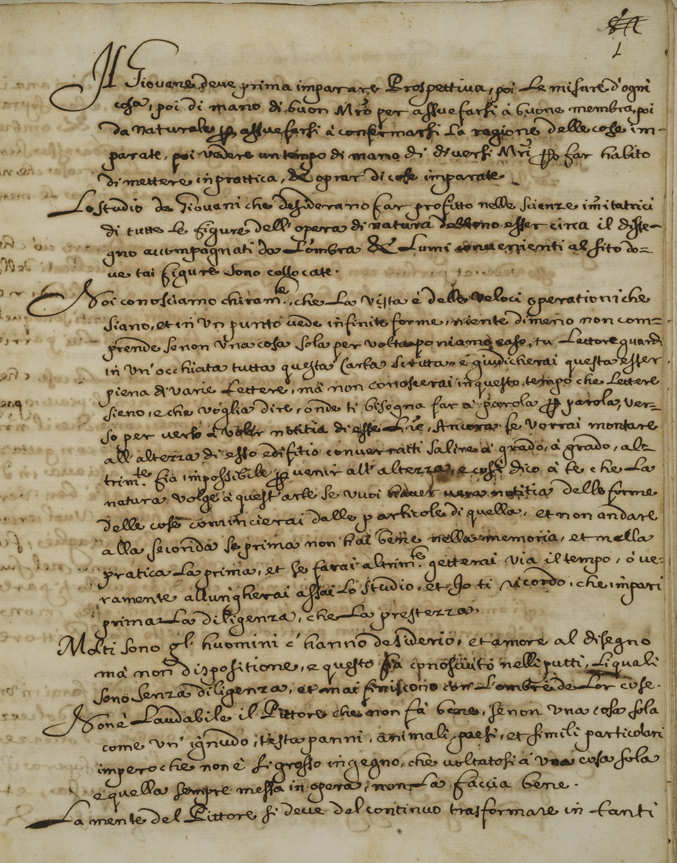 Il Giovane deve prima imparare Prospettiva, poi Le misure d'ogni
cosa, poi di mano di buon Mro per assuefarsi à buone membra, poi
da naturale per assuefarsi à confermarsi La ragione delle cose im-
parate, poi vedere un tempo di mano di diversi Mri per far habito
di mettere in prattica, et oprar di cose imparate.
Lo studio de Giovani che desiderano far profitto nelle scienze imitatrici
di tutte le figure dell'opera di natura debbono esser circa il disse-
gno accompagnati da L'ombra et Lumi convenienti al sito do-
ve tai figure sono collocate.
Noi conosciamo chiaramte, che La vista è delle veloci operationi che
siano, et in un punto vede infinite forme, niente dimeno non com-
prende se non una cosa sola per volta poniamo caso, tu Lettore guardi
in un'occhiata tutta questa Carta scritta, e giudicherai questa esser
piena di varie Lettere, mà non conoscerai in questo tempo che Lettere
sieno, e che voglia dire, onde ti bisogna far à parola per parola, ver-
so per verso à voler notitia di esse Lre, Ancora se vorrai montare
all'altezza di esso edifitio converratti salire à grado, à grado, al-
trimte fia impossibile per venir all'altezza, e così dico à te, che La
natura volge à quest'arte se vuoi haver vera notitia delle forme
delle cose comincierai dalle particole di quella, et non andare
alla seconda se prima non hai bene nella memoria, et nella
pratica La prima, et se farai altrimte getterai via il tempo, ò ve-
ramente allungherai assai Lo studio, et Io ti ricordo, che impari
prima La diligenza, che La prestezza.
Molti sono gl' huomini c'hanno desiderio, et amore al disegno
mà non dispositione, e questo fia conosciuto nelli putti, Li quali
sono senza diligenza, et mai finiscono con L'ombre de Lor cose.
Non è Laudabile il Pittore che non fà bene, se non una cosa sola
come un' ignudo, testa panni, animali, paesi, et simili particolari
imperoche non è si grosso ingegno, che voltatosi à una cosa sola
e quella sempre messa in opera, non La faccia bene.
La mente del Pittore si deve del continuo trasformare in tanti